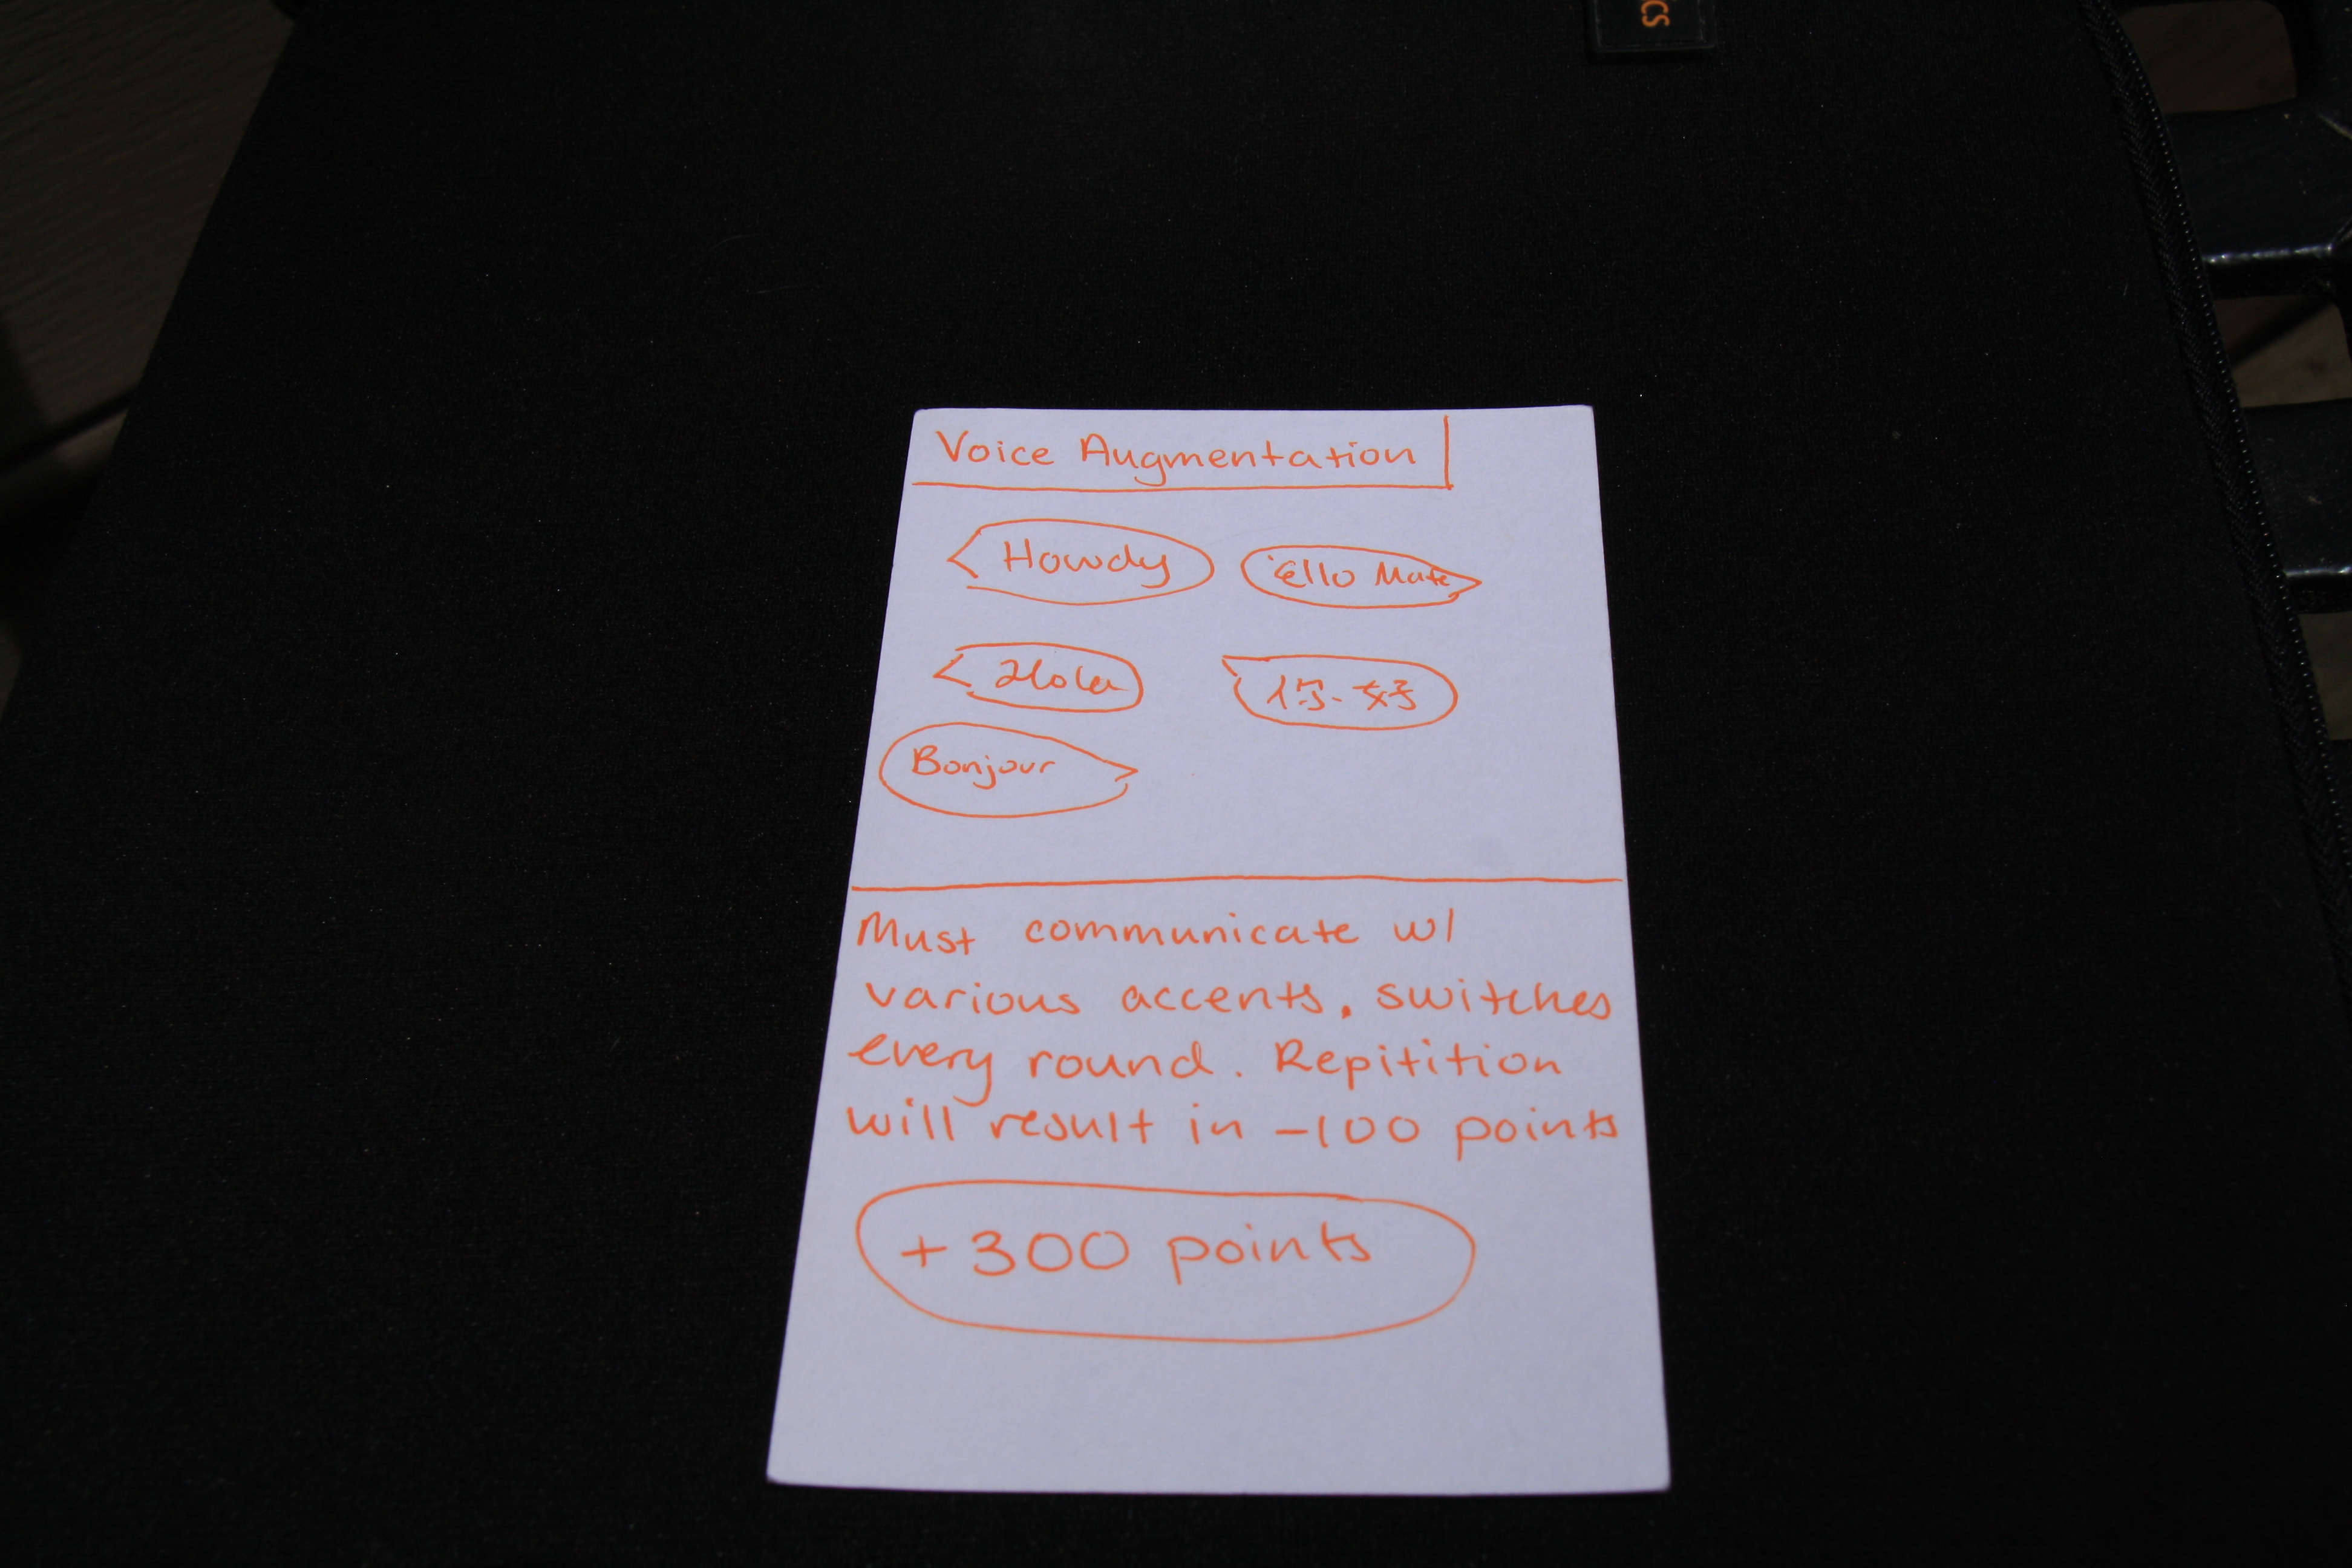 CS
Voice Augmentation
Howdy
'Ello Mate
Hola
你好
Bonjour
Must communicate w/
various accents, switches
every round. Repitition
will result in -100 points
+300 points